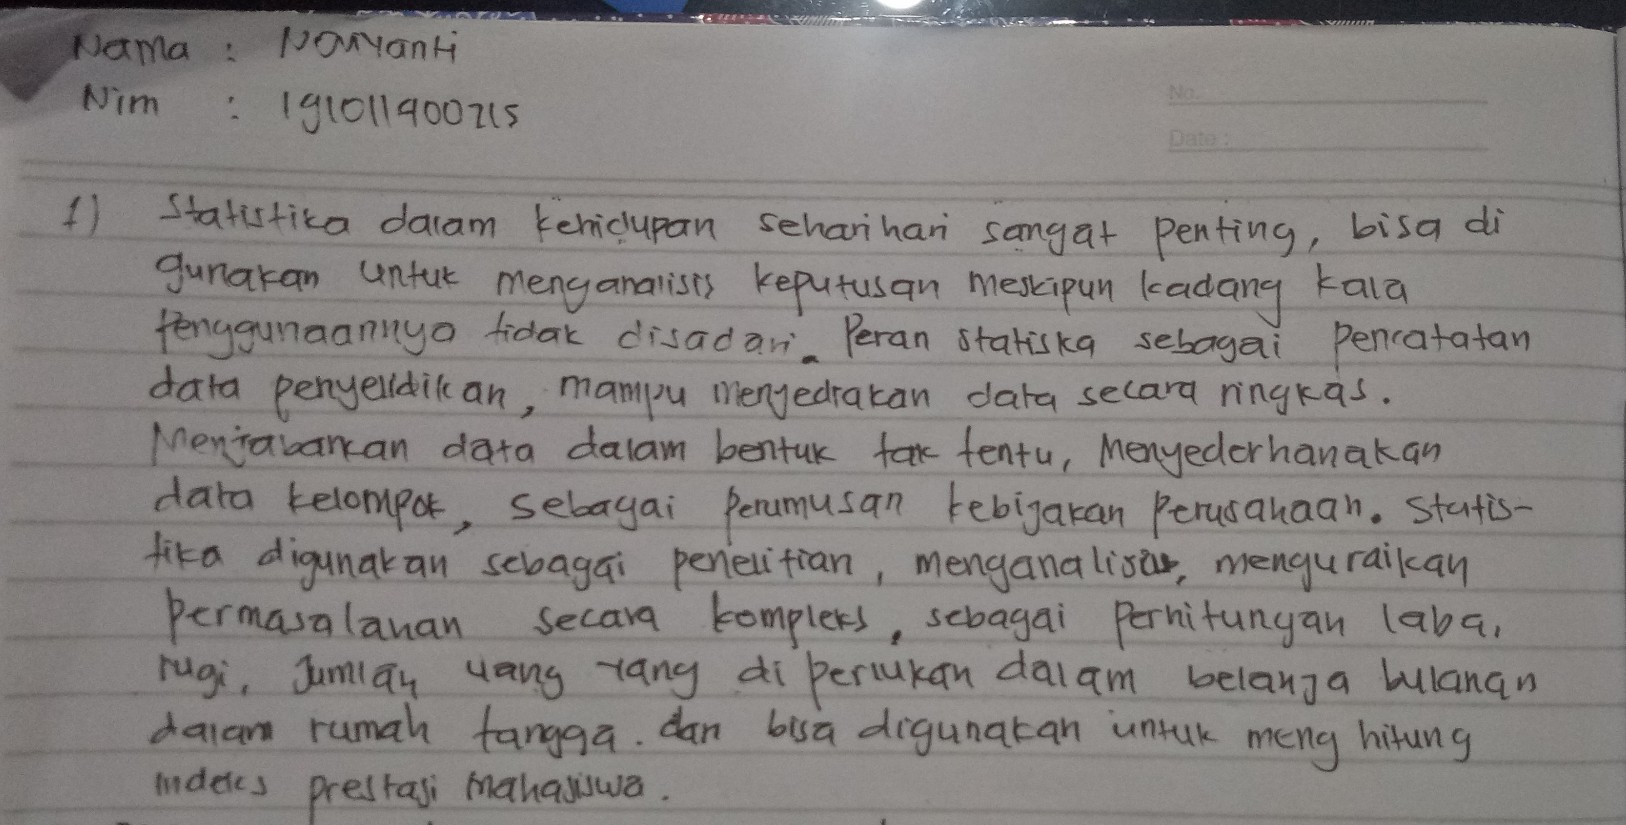 Nama : Novyanti
Nim : 191011900215
No.
Date :
1) Statistika dalam kehidupan seharihari sangat penting, bisa di
gunakan untuk menganalisis keputusan meskipun kadang kala
Penggunaannya tidak disadari. Peran statiska sebagai Pencatatan
data penyelidikan, mampu menyediakan data secara ringkas.
Menjabarkan data dalam bentuk tak tentu, Menyederhanakan
data kelompok, sebagai Perumusan kebijakan Perusahaan. Statis-
tika digunakan sebagai penelitian, menganalisis, menguraikan
Permasalahan secara kompleks, sebagai Perhitungan laba,
rugi, Jumlah uang yang di perlukan dalam belanja bulanan
dalam rumah tangga. dan bisa digunakan untuk meng hitung
indeks prestasi Mahasiswa.